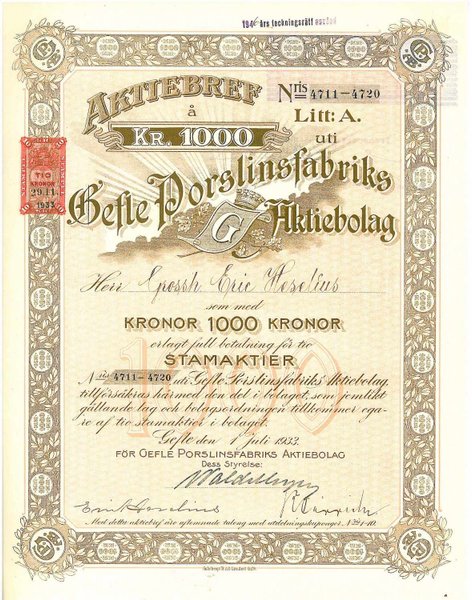 1946 års teckningsrätt
AKTIEBREF
Nris 4711-4720
å
Litt: A.
KR. 1000
uti
TIO
KRONOR
29.11.
1933
Gefle Porslinsfabriks
G
Aktiebolag
Herr Grossh. Eric Hoselius
som med
KRONOR 1000 KRONOR
erlagt full betalning för tio
STAMAKTIER
Nris 4711-4720 uti Gefle Porslinsfabriks Aktiebolag,
tillförsäkras härmed den del i bolaget, som jemlikt
gällande lag och bolagsordningen tillkommer ega-
re af tio stamaktier i bolaget.
Gefle den 1 Juli 1933.
FÖR GEFLE PORSLINSFABRIKS AKTIEBOLAG
Dess Styrelse:
Eric Hoselius
Med detta aktiebref äro utlemnade talong med utdelningskuponger, No 1-10.